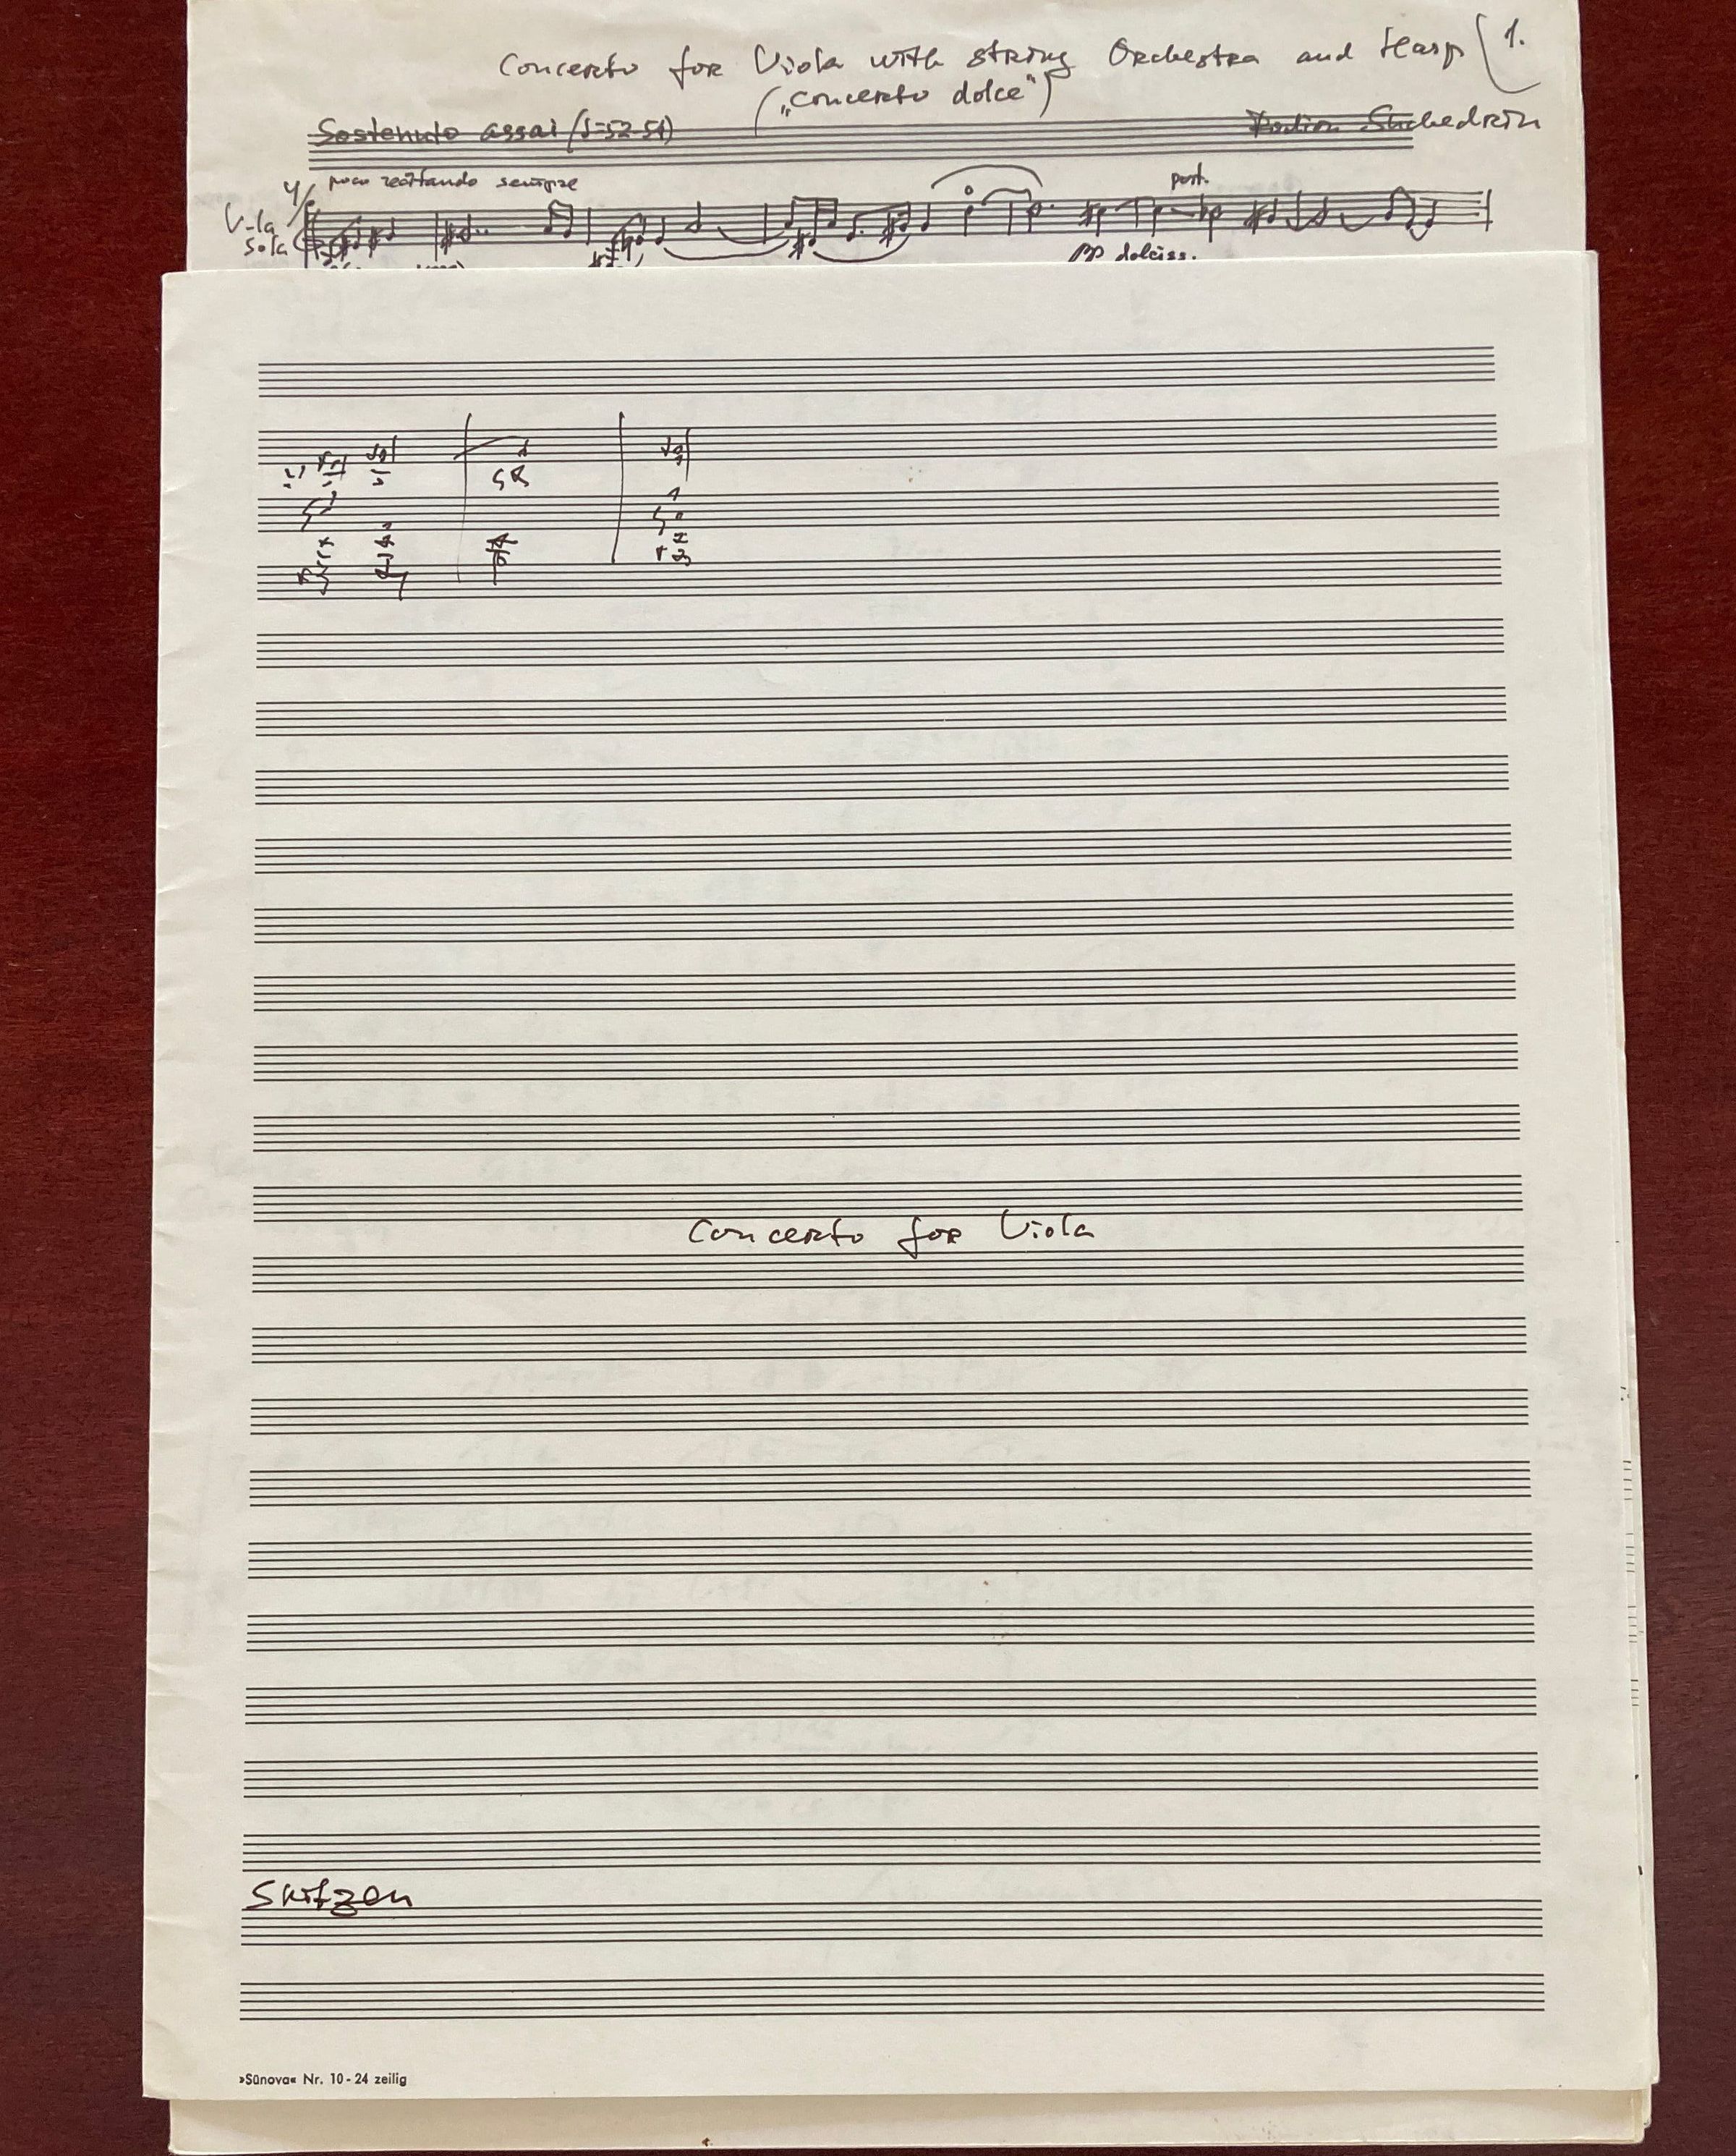 Concerto for Viola with string Orchestra and Harp 1.
("Concerto dolce")
Sostenuto assai (♩=52-54) Rodion Shchedrin
poco recitando sempre
port.
V-la
sola
pp dolciss.
Concerto for Viola
Skitzen
»Sünova« Nr. 10 - 24 zeilig